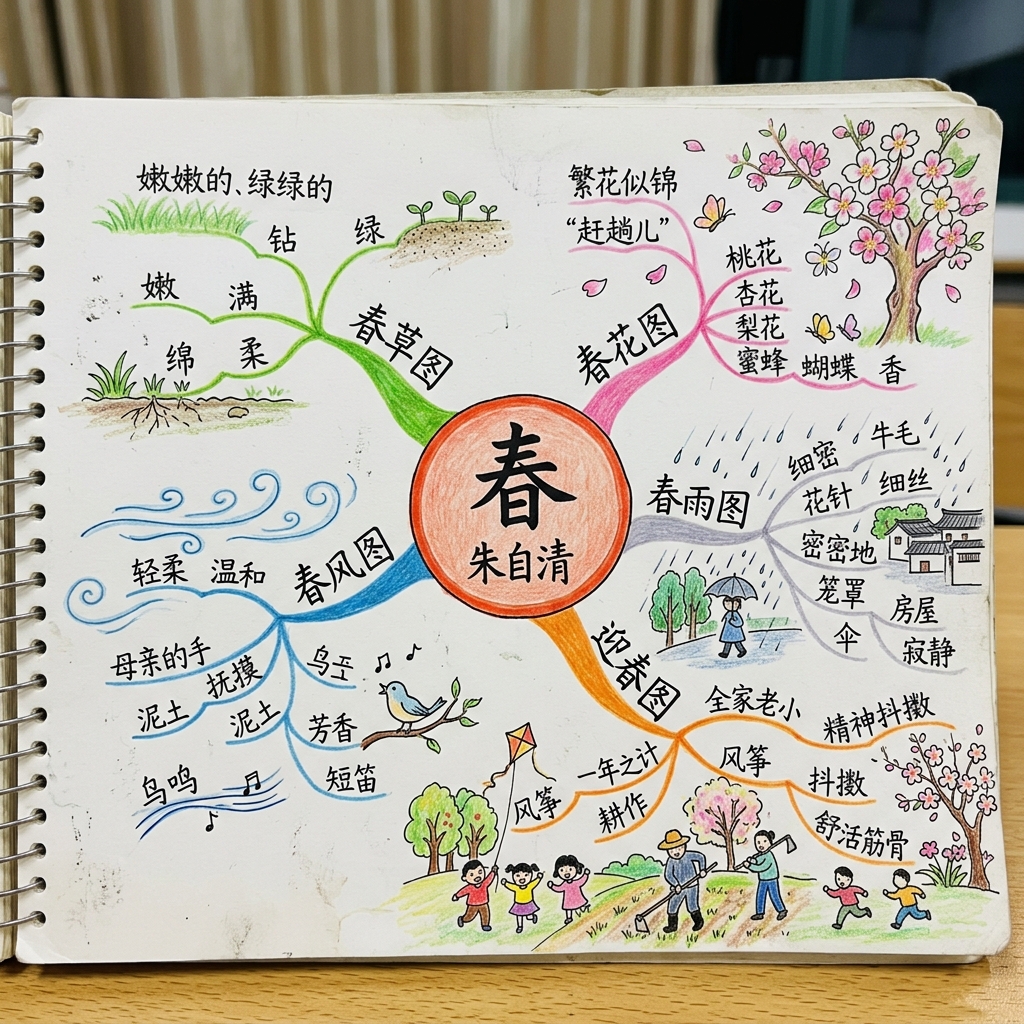 春
朱自清
春草图
嫩嫩的、绿绿的
钻
绿
嫩
满
绵
柔
春花图
繁花似锦
“赶趟儿”
桃花
杏花
梨花
蜜蜂
蝴蝶
香
春风图
轻柔
温和
母亲的手
抚摸
泥土
泥土
芳香
短笛
鸟鸣
春雨图
细密
牛毛
花针
细丝
密密地
笼罩
房屋
伞
寂静
迎春图
全家老小
精神抖擞
一年之计
风筝
风筝
抖擞
耕作
舒活筋骨